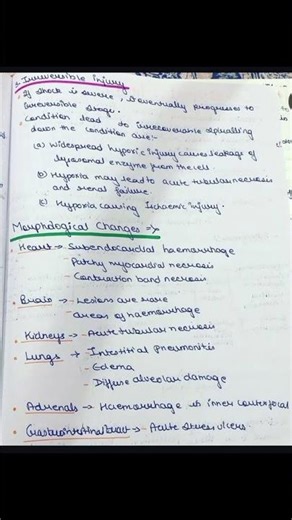 3. Irreversible injury
• If shock is severe, it eventually progresses to
irreversible stage.
• Condition lead to irrecoverable spiralling
down the condition are:-
(a) Widespread hypoxic injury causes leakage of
lysosomal enzyme from the cell.
(b) Hypoxia may lead to acute tubular necrosis
and renal failure.
(c) Hypoxia causing Ischaemic injury.
Morphological Changes →
• Heart → Subendocardial haemorrhage
- Patchy myocardial necrosis
- Contraction band necrosis
• Brain → - Lesions are rare
- areas of haemorrhage
• Kidneys → - Acute tubular necrosis
• Lungs → - Interstitial pneumonitis
- Edema
- Diffuse alveolar damage
• Adrenals → Haemorrhage in inner
• Gastrointestinal tract → - Acute stress ulcers.